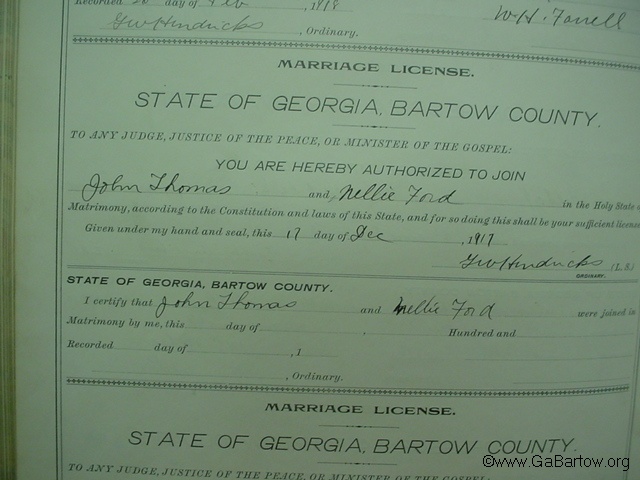 Recorded 20 day of Feb , 1918
GW Hendricks W.H. Farrell
, Ordinary.
MARRIAGE LICENSE.
STATE OF GEORGIA, BARTOW COUNTY.
TO ANY JUDGE, JUSTICE OF THE PEACE, OR MINISTER OF THE GOSPEL:
YOU ARE HEREBY AUTHORIZED TO JOIN
John Thomas and Nellie Ford in the Holy State o
Matrimony, according to the Constitution and laws of this State, and for so doing this shall be your sufficient license
Given under my hand and seal, this 17 day of Dec , 1917
GW Hendricks (L. S.)
ORDINARY.
STATE OF GEORGIA, BARTOW COUNTY.
I certify that John Thomas and Nellie Ford were joined in
Matrimony by me, this day of , Hundred and
Recorded day of , 1
, Ordinary.
MARRIAGE LICENSE.
STATE OF GEORGIA, BARTOW COUNTY.
TO ANY JUDGE, JUSTICE OF THE PEACE, OR MINISTER OF THE GOSPEL:
©www.GaBartow.org